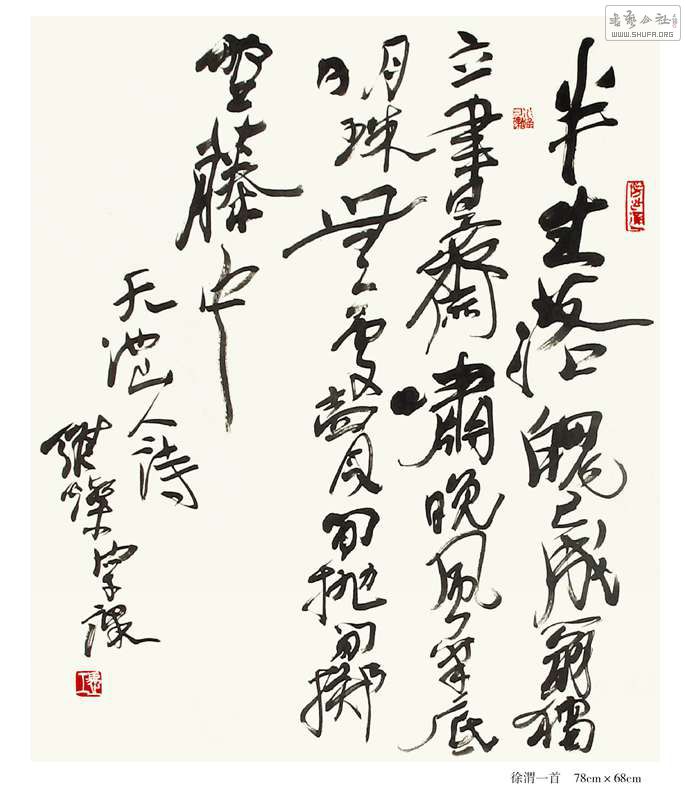 書藝公社
WWW.SHUFA.ORG
半生落魄已成翁獨
立書齋嘯晚風筆底
明珠無處賣閒抛閒擲
野藤中
天池山人詩
燦字課
徐渭一首 78cm×68cm